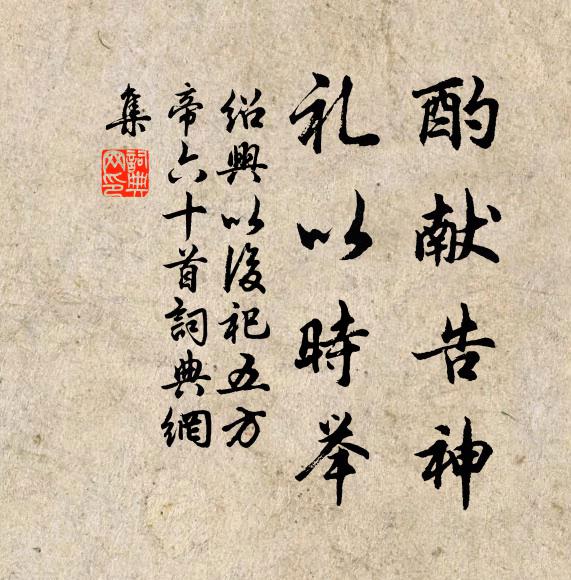 酌献告神
礼以時举
绍興以後祀五方
帝六十首詞典網
集
詞典
网印